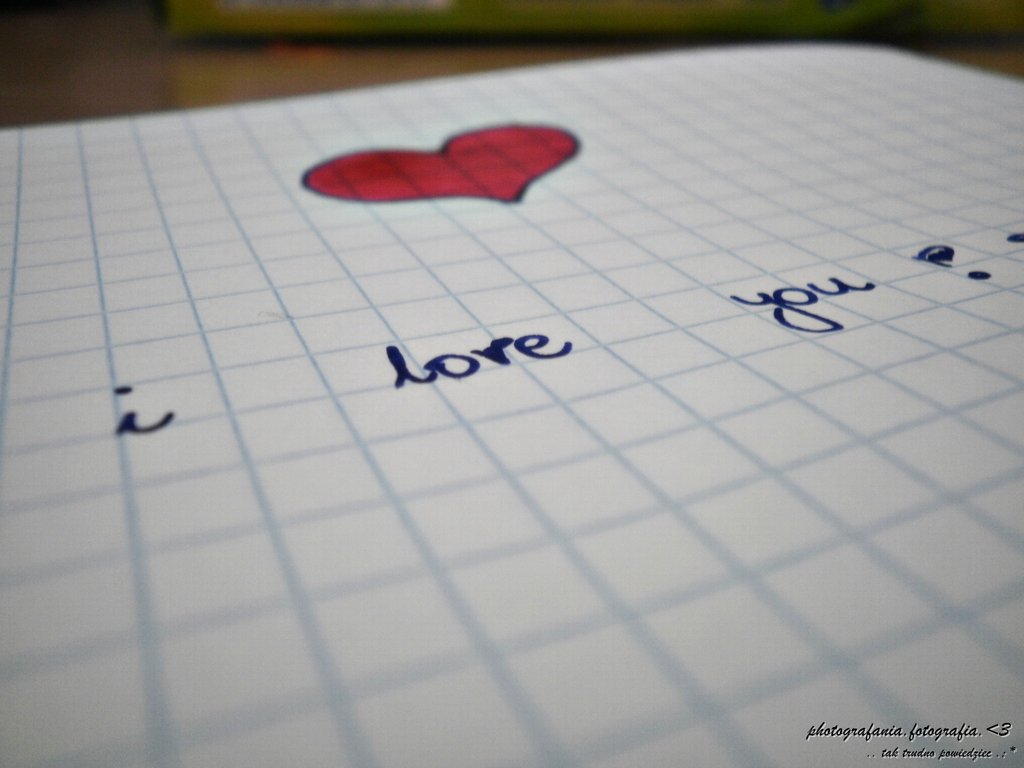 i love you
photografania.fotografia.<3
.. tak trudno powiedziec .:*